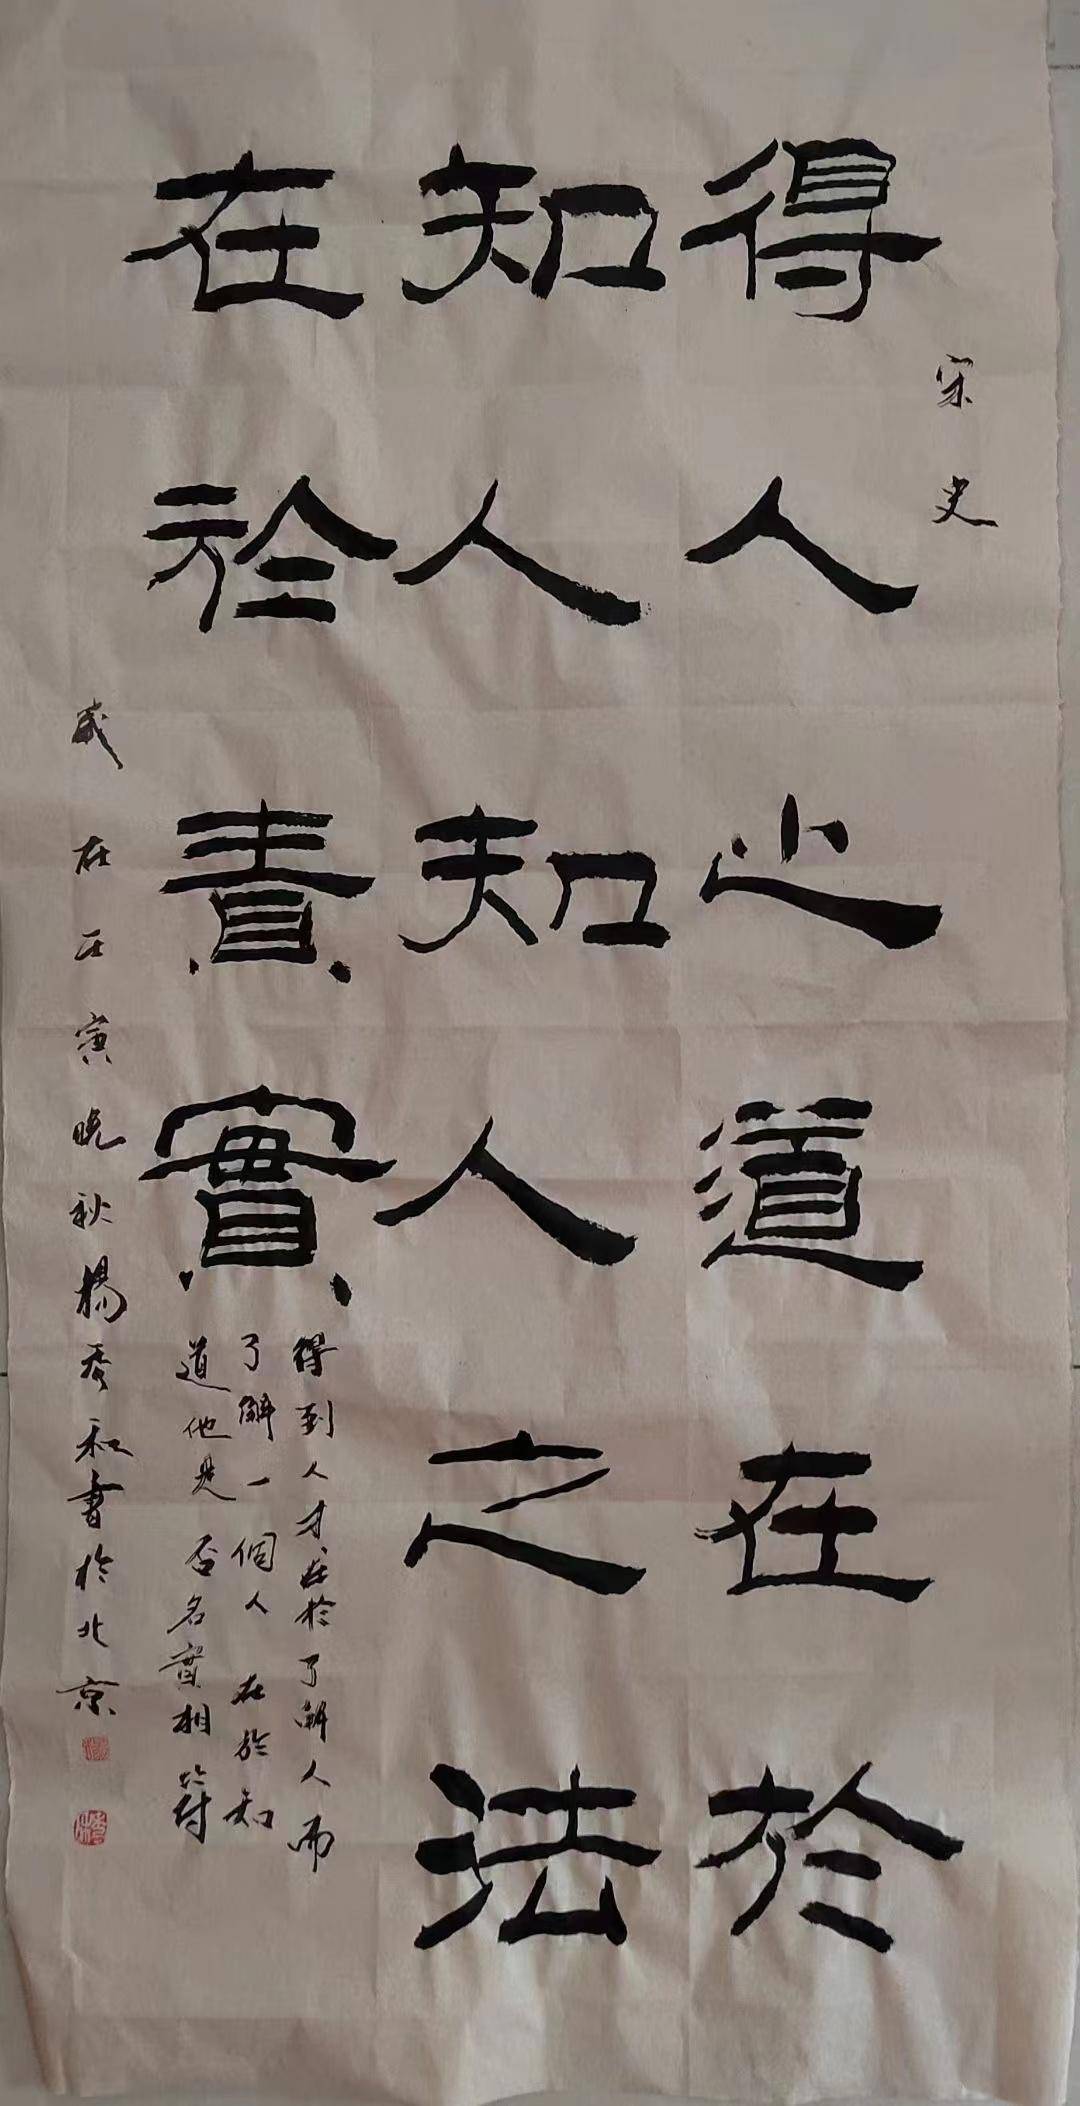 宋史
得人之道在於
知人知人之法
在於責實
得到人才在於了解人而
了解一個人在於知
道他是否名實相符
歲在壬寅晚秋楊秀和書於北京